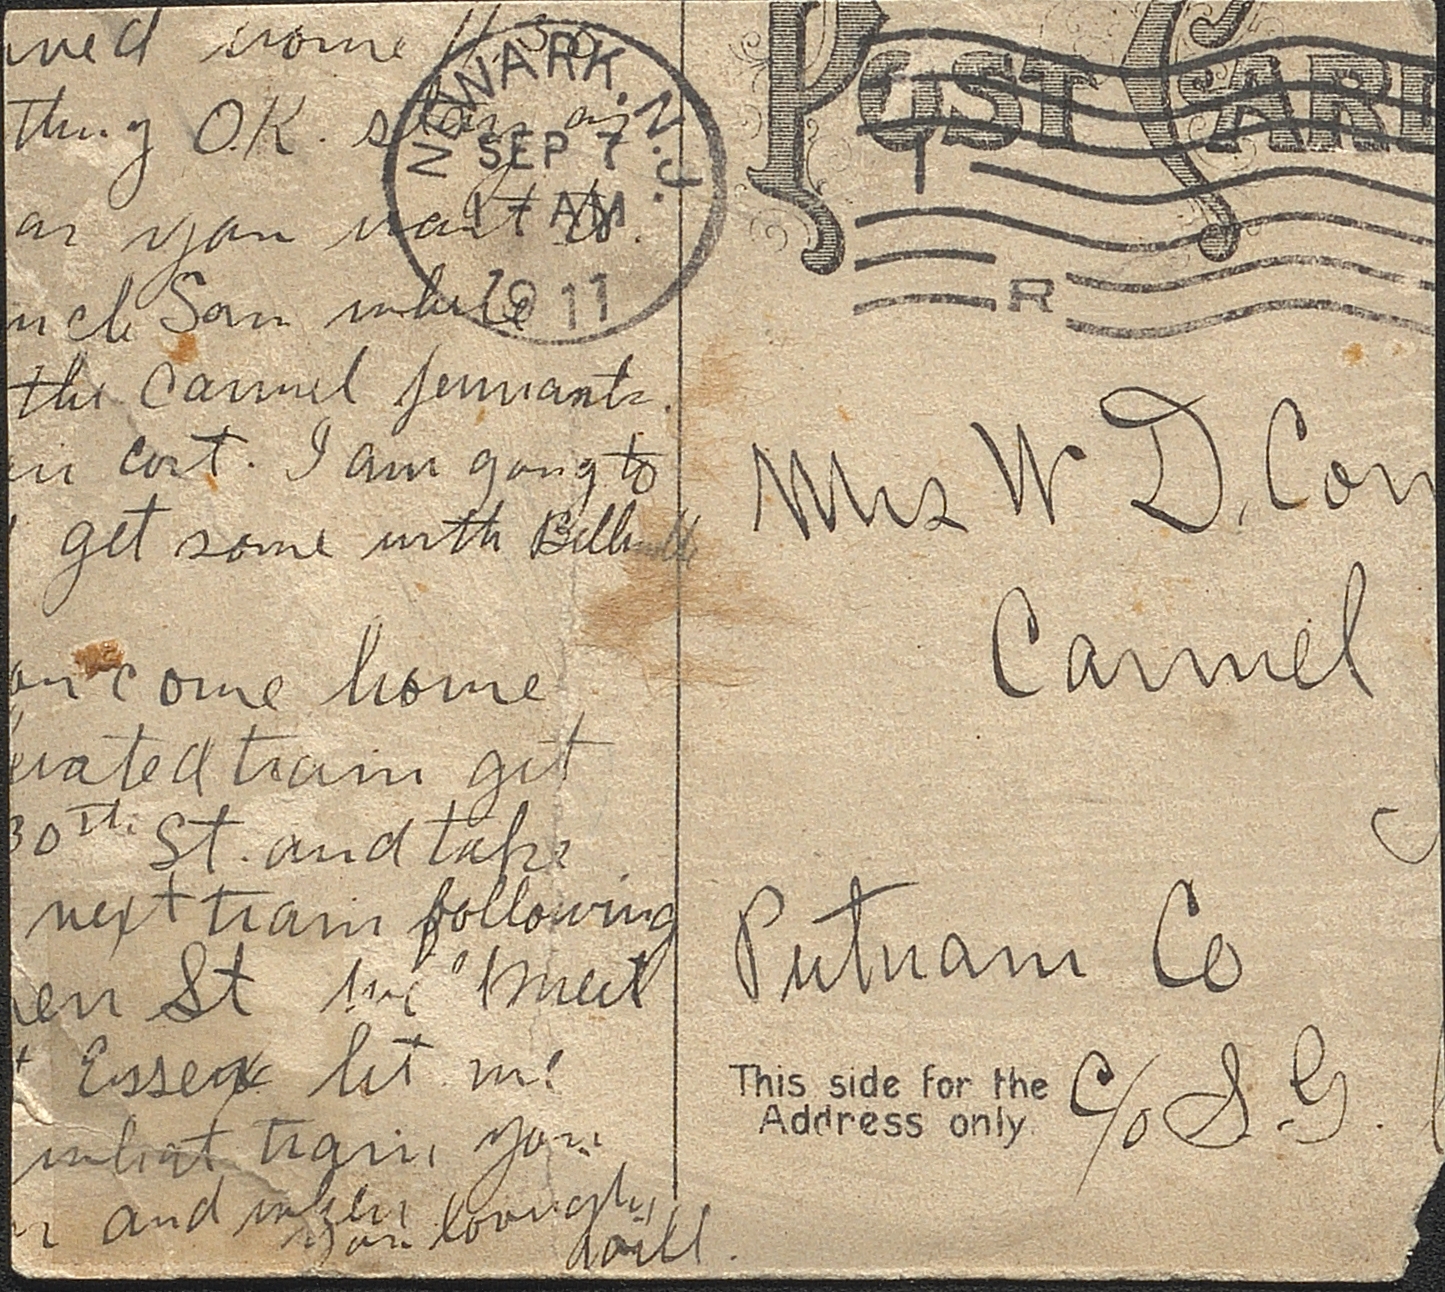 ived home 11.30
thing OK. stay as
as you want to.
ncle Sam while
the Carmel pennants.
in cost. I am going to
get some with Bellville
on come home
evated train get
30th St. and take
next train following
en St we'l meet
Essex let me
what train you
and when
you lovingly
Will.
NEWARK, N.J.
SEP 7
1 - AM
1911
POST CARD
R
Mrs W D. Con
Carmel
Putnam Co
This side for the
Address only.
C/o S. G.